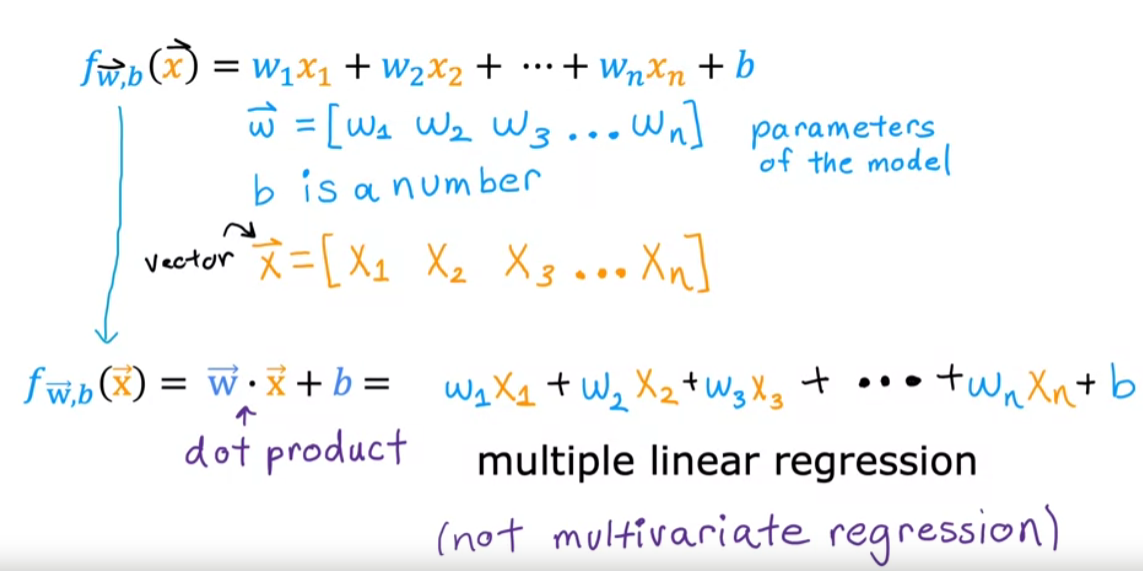 f_{\vec{w},b}(\vec{x}) = w_1x_1 + w_2x_2 + ⋯ + w_nx_n + b
\vec{w} = [w_1 w_2 w_3 ... w_n] parameters
of the model
b is a number
vector \vec{x} = [x_1 x_2 x_3 ... x_n]
f_{\vec{w},b}(\vec{x}) = \vec{w} · \vec{x} + b = w_1x_1 + w_2x_2 + w_3x_3 + ... + w_nx_n + b
dot product
multiple linear regression
(not multivariate regression)